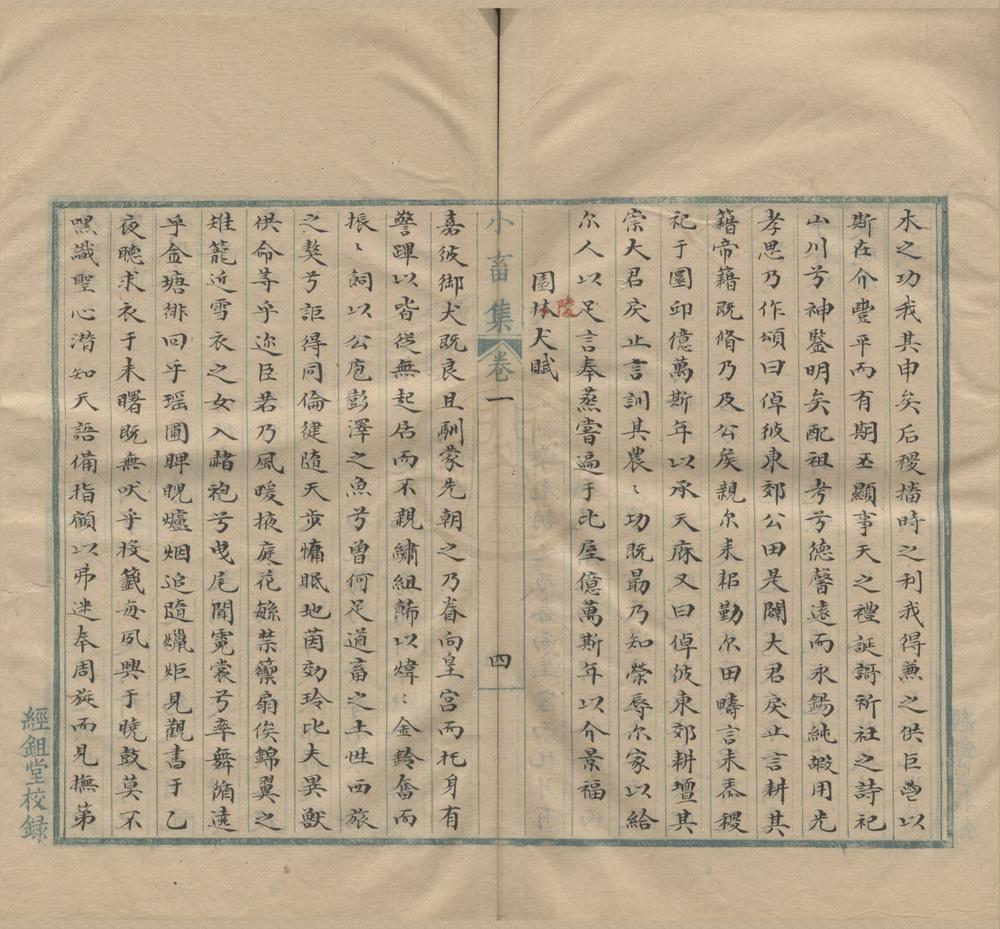 水之功我其申矣后稷播時之利我得兼之供巨邕以
斯在介豐平而有期丕顯事天之禮誕謌祈社之詩祀
山川兮神鑒明矣配祖考兮德馨遠而永錫純嘏用光
孝思乃作頌曰倬彼東郊公田是闢大君戾止言耕其
籍帝籍既脩乃及公矣親尔耒耜勤尔田疇言末黍稷
祀于圜印億萬斯年以承天庥又曰倬彼東郊耕壇其
崇大君戾止言訓其農〻功既勗乃知榮辱尔家以給
尔人以足言奉蒸嘗遍于比屋億萬斯年以介景福
園林犬賦
陵
小畜集卷一
四
嘉彼御犬既良且馴蒙先朝之乃眷向皇宮而托身有
警蹕以皆從無起居而不親繡組飾以煒〻金鈴奮而
振〻飼以公庖彭澤之魚兮曾何足道畜之土性西旅
之獒兮詎得同倫徤隨天步慵眠地茵効玲比夫異獸
供命等乎迩臣若乃風暖掖庭花繁禁籞扇俟錦翼之
雉籠近雪衣之女入赭袍兮曳尾聞霓裳兮率舞循遶
乎金塘徘徊乎瑶圃睥睨爐烟追隨蠟炬見觀書于乙
夜聽求衣于未曙既無吠乎投籤每夙興于曉鼓莫不
嘿識聖心潜知天語備指顧以弗迷奉周旋而見撫第
經鉏堂校録